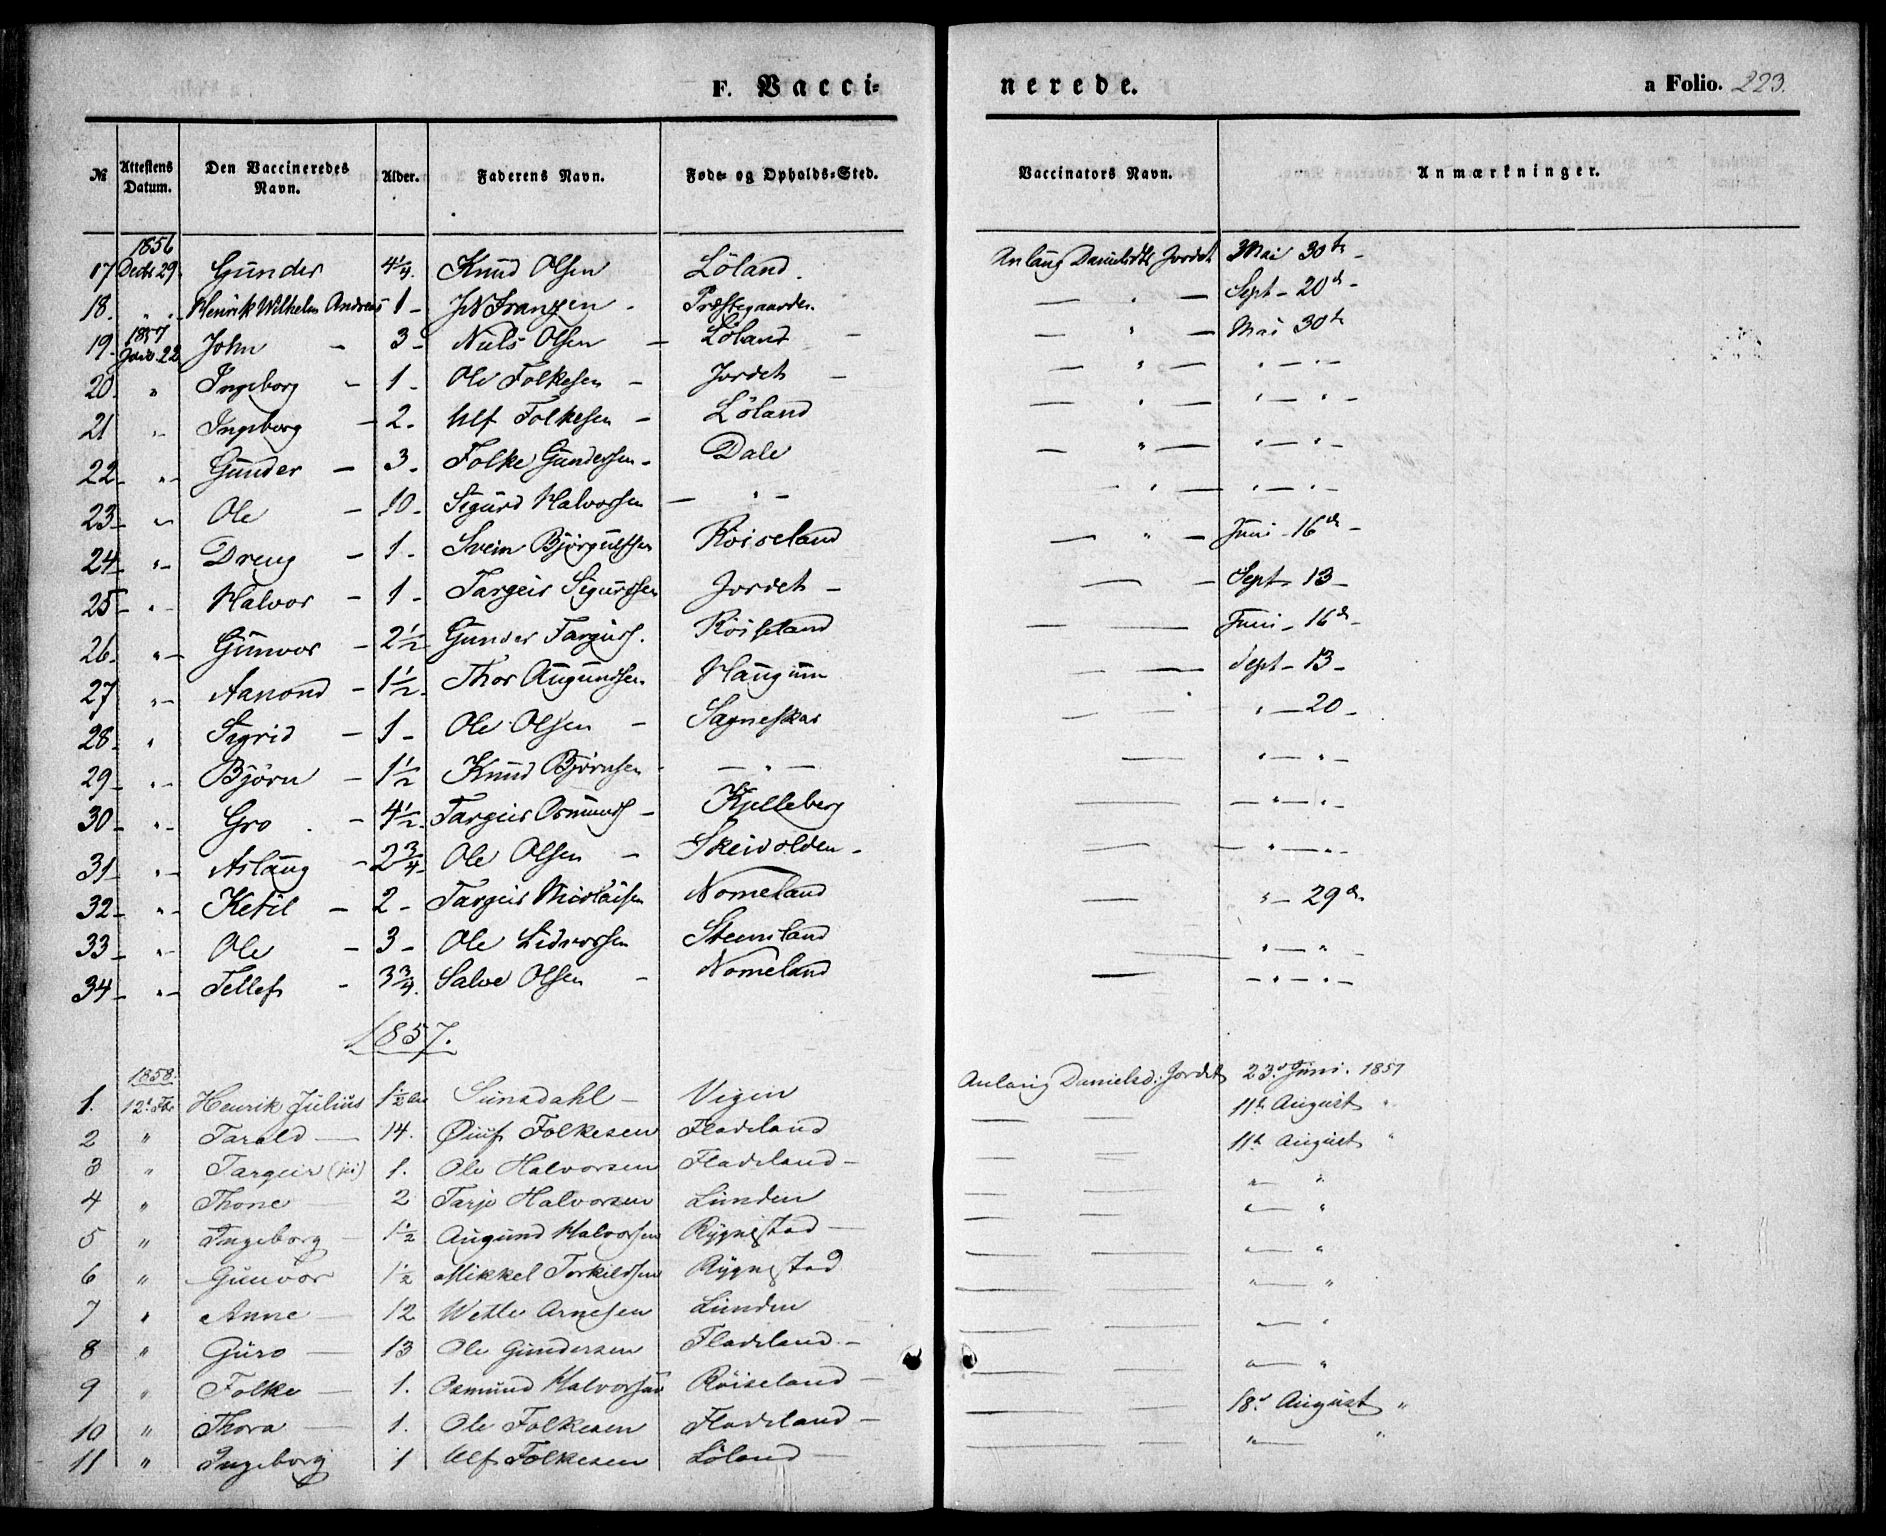 F. Vacci- nerede. a Folio. 223.
№ Attestens Datum. Den Vaccineredes Navn. Alder. Faderens Navn. Føde- og Opholds-Sted. Vaccinators Navn. Anmærkninger.
1856
17 Decbr 29. Gunder 4¼ Knud Olsen Löland. Aslaug Jordet Mai 30te
18. „ Henrik Wilhelm Andreas 1 - Franzen - Præstegaarden. — „ — Sept - 20de -
1857
19. Janr. 22 John - 3 - Niels Olsen - Löland - — „ — Mai 30te
20. „ Ingeborg - 1 - Ole Folkesen - Jordet - — „ — „ — „ —
21 „ Ingeborg - 2. Ulf Folkesen - Löland — „ — „ — „ —
22 - „ - Gunder - 3 - Folke Gundersen - Dale — „ — „ — „ —
23 - „ Ole - 10 - Sigurd Halvorsen — „ — — „ — „ — „ —
24 - „ - Dreng - 1 - Svein Björgulfsen Röiseland — „ — Juni - 16de -
25 - „ - Halvor - 1 - Targeir Sigurdsen Jordet - — — Sept - 13 -
26 - „ - Gunvor - 2½ Gunder Targiers. Röiseland — — Juni - 16de -
27 „ - Aanond - 1½ - Thor Augundsen Haugum — — Sept - 13 -
28 - „ Sigrid - 1 - Ole Olsen - Sagneskar — — „ — 20 -
29 - „ - Björn - 1½ Knud Björnsen — „ — — „ — „ -
30 - „ - Gro - 4½ - Targeir Osmunds - Kjelleberg — — „ — „ -
31 - „ - Aslaug - 2¾ - Ole Olsen - Skeivolden - — — „ — „ -
32 - „ - Ketil - 2 - Targeir Nicolaisen Nomeland — „ — 29de
33 - „ - Ole - 3 - Ole Lidvorsen — „ — „
34 - „ - Tellef - 3¾. Salve Olsen - Nomeland — — „ — „ —
1857.
1858.
1. 12te Henrik Julius 1½ Sunsdahl - Vigen Aslaug Danielsd: Jordet 23de Juni. 1857
2 „ Tarald — 14. Folkesen Fladeland — — 11te August „
3 „ Targeir 1. Ole Halvorsen Fladeland - — — 11te August „
4 „ Thone — 2 Tarje Halvorsen Lunden — — „ — „
5 „ Ingeborg - 1½ Augund Halvorsen Rygnestad — — — „ — „
6 „ Gunvor 1½ Mikkel Torkildsen Rygnestad — — „ — „
7 „ Anne — 12 Wetle Arnesen Lunden — — „ — „
8 „ Guro — 13 Ole Gundersen Fladeland - — — „ — „
9 „ Folke — 1. Osmund Halvorsen Röiseland — — — „ — „
10 „ Thora — 1. Ole Folkesen Fladeland — — — 18de August „
11 „ Ingeborg 1 Ulf Folkesen Löland — — — „ — „